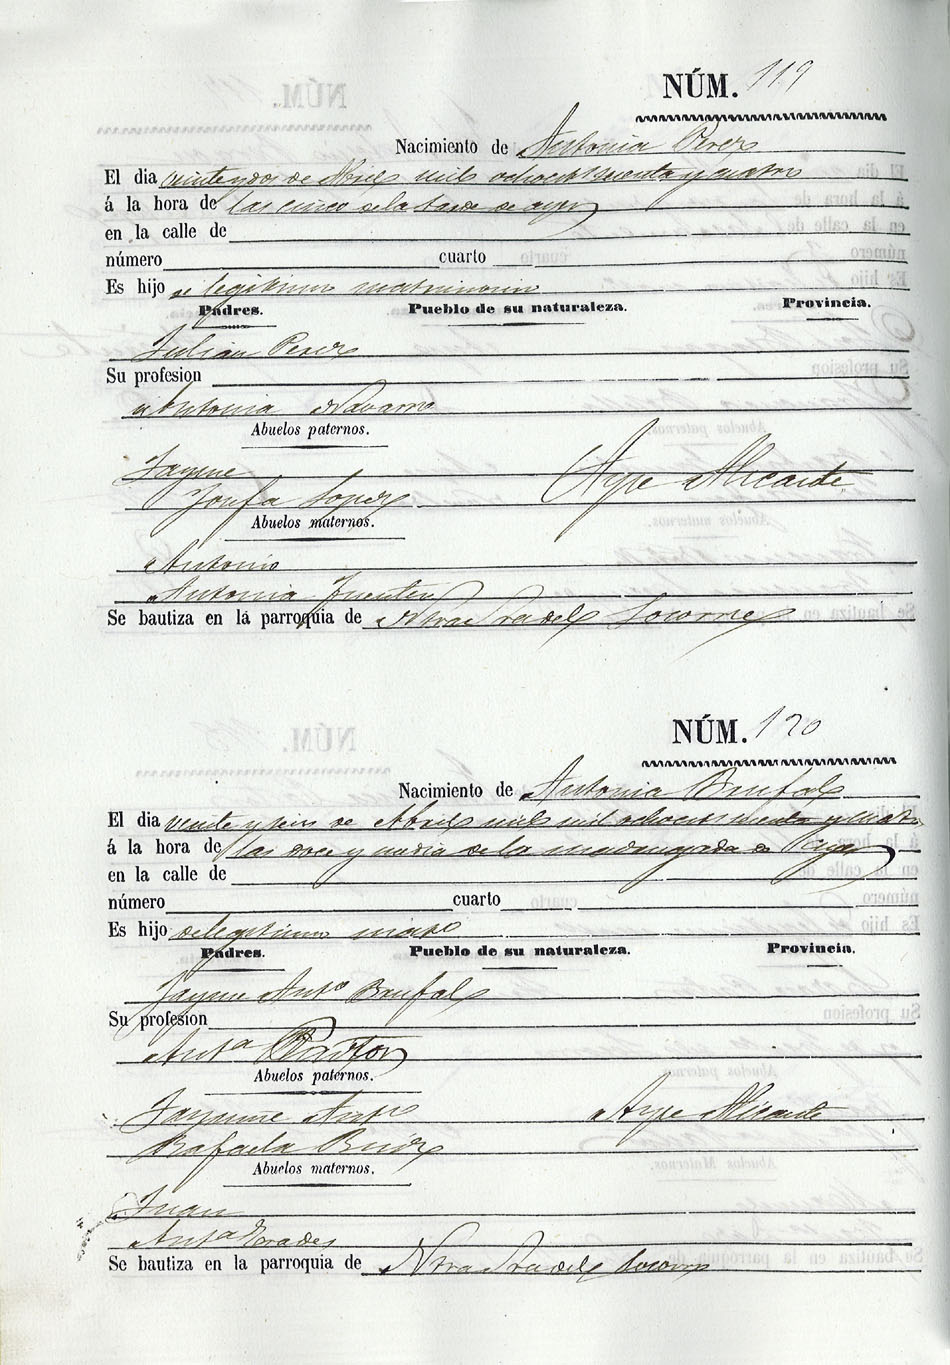 NÚM. 119
Nacimiento de Antonia Perez
El dia veinte y dos de Abril mil ochoct sesenta y cuatro
á la hora de las cinco de la tarde de ayer
en la calle de
número cuarto
Es hijo de legitimo matrimonio
Padres. Pueblo de su naturaleza. Provincia.
Julian Perez
Su profesion
Antonia Navarro
Abuelos paternos.
Jayme
Josefa Lopez Aspe Alicante
Abuelos maternos.
Antonio
Antonia Fuentes
Se bautiza en la parroquia de Ntra Sra del Socorro
NÚM. 120
Nacimiento de Antonia
El dia veinte y seis de Abril mil mil ochocts sesenta y cuatro
á la hora de las doce y media de la madrugada de
en la calle de
número cuarto
Es hijo de legitimo mato
Padres. Pueblo de su naturaleza. Provincia.
Jayme Anto
Su profesion
Anta Pastor
Abuelos paternos.
Jayme Anto Aspe Alicante
Rafaela
Abuelos maternos.
Juan
Anta
Se bautiza en la parroquia de Ntra Sra del Socorro